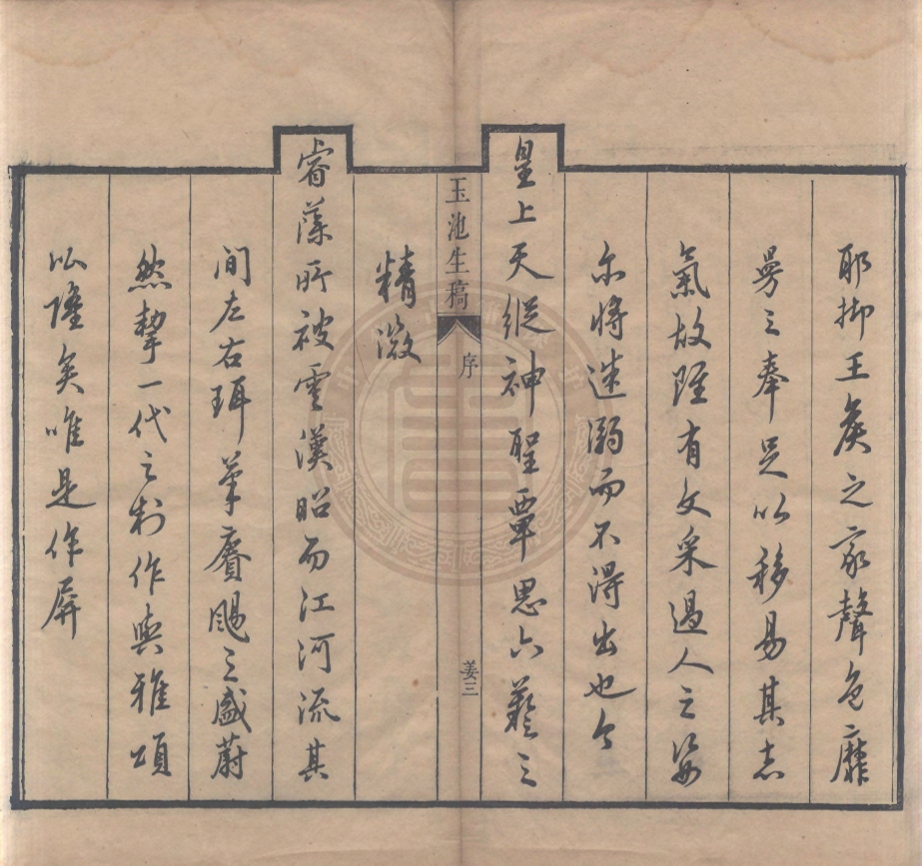 耶抑王矦之家聲色靡
曼之奉足以移易其志
氣故雖有文采過人之姿
亦將迷溺而不得出也今
皇上天縱神聖覃思六藝之
玉池生稿
序
姜三
精微
睿藻所被雲漢昭而江河流其
間左右珥筆賡颺之盛蔚
然挚一代之制作與雅頌
以隆矣唯是作屏